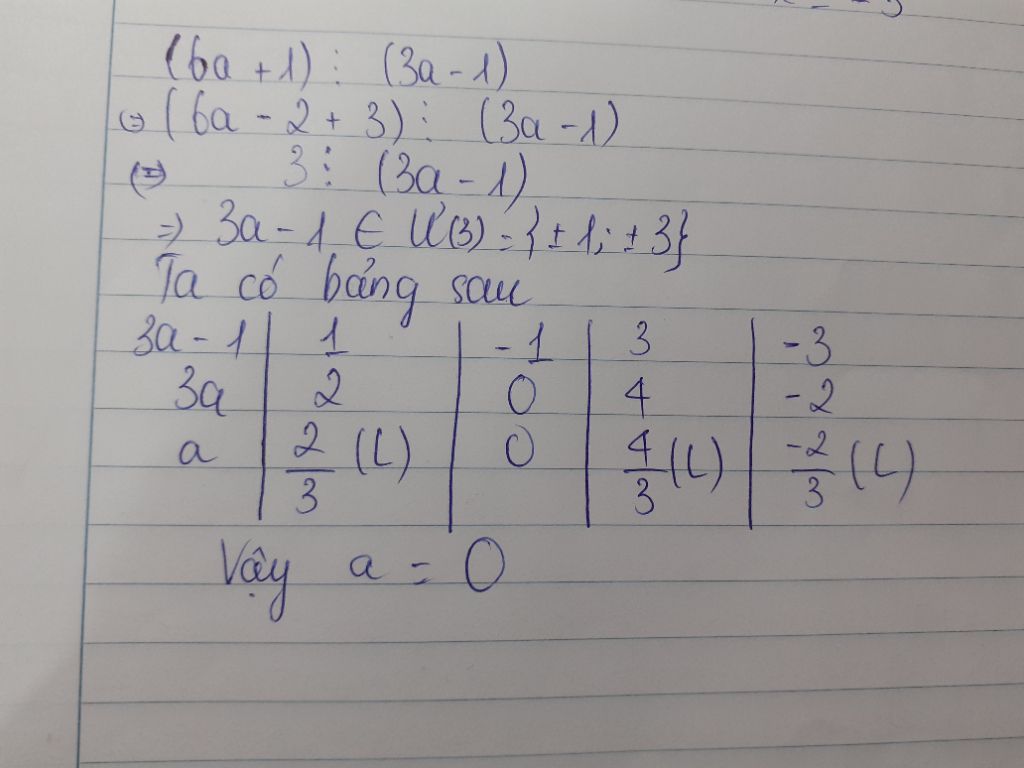 (6a + 1) ⋮ (3a - 1)
(=) (6a - 2 + 3) ⋮ (3a - 1)
(=) 3 ⋮ (3a - 1)
=) 3a - 1 ∈ Ư(3) = {±1; ±3}
Ta có bảng sau
3a - 1 | 1 | -1 | 3 | -3
3a | 2 | 0 | 4 | -2
a | 2/3 (L) | 0 | 4/3 (L) | -2/3 (L)
Vậy a = 0